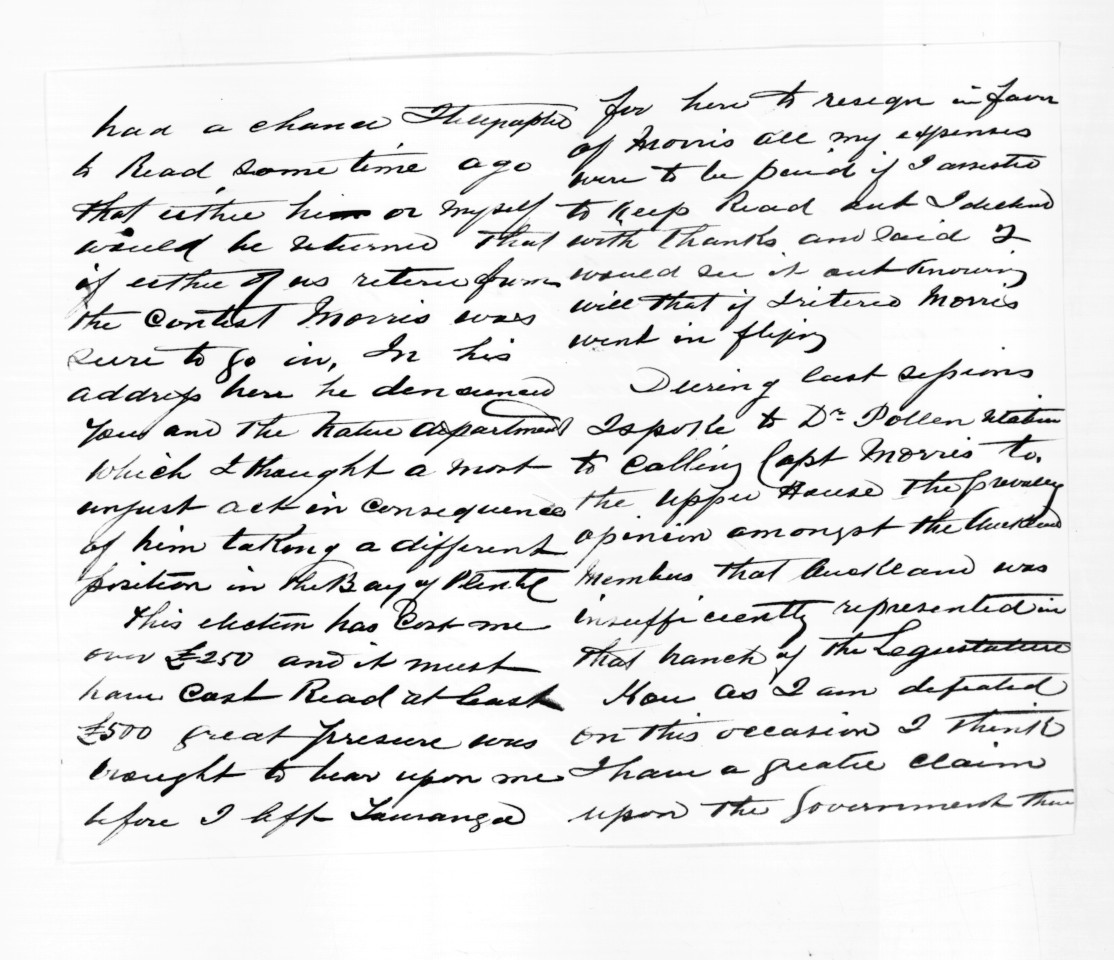 had a chance Telegraphed
to Read some time ago
that esther him or myself
would be returned that
if esther of us retire from
the contest Morris was
sure to go in, In his
address here he denounced
you and the Native department
which I thought a most
unjust act in consequence
of him taking a different
position in the Bay of Plenty
This election has Cost me
over £250 and it must
have Cost Read at least
£500 great presure was
brought to bear upon me
before I left Tauranga
for here to resign in favor
of Morris all my expenses
were to be paid if I assisted
to Keep Read out I declined
with thanks and said I
would see it out knowing
will that if I retired Morris
went in flying
During last sessions
I spoke to Dr. Pollen
to calling Capt Morris to
the upper House the
opinion amongst the Auckland
Members that Auckland was
insufficiently represented in
that branch of the Legislature
Now as I am defeated
on this occasion I think
I have a greater claim
upon the Government than